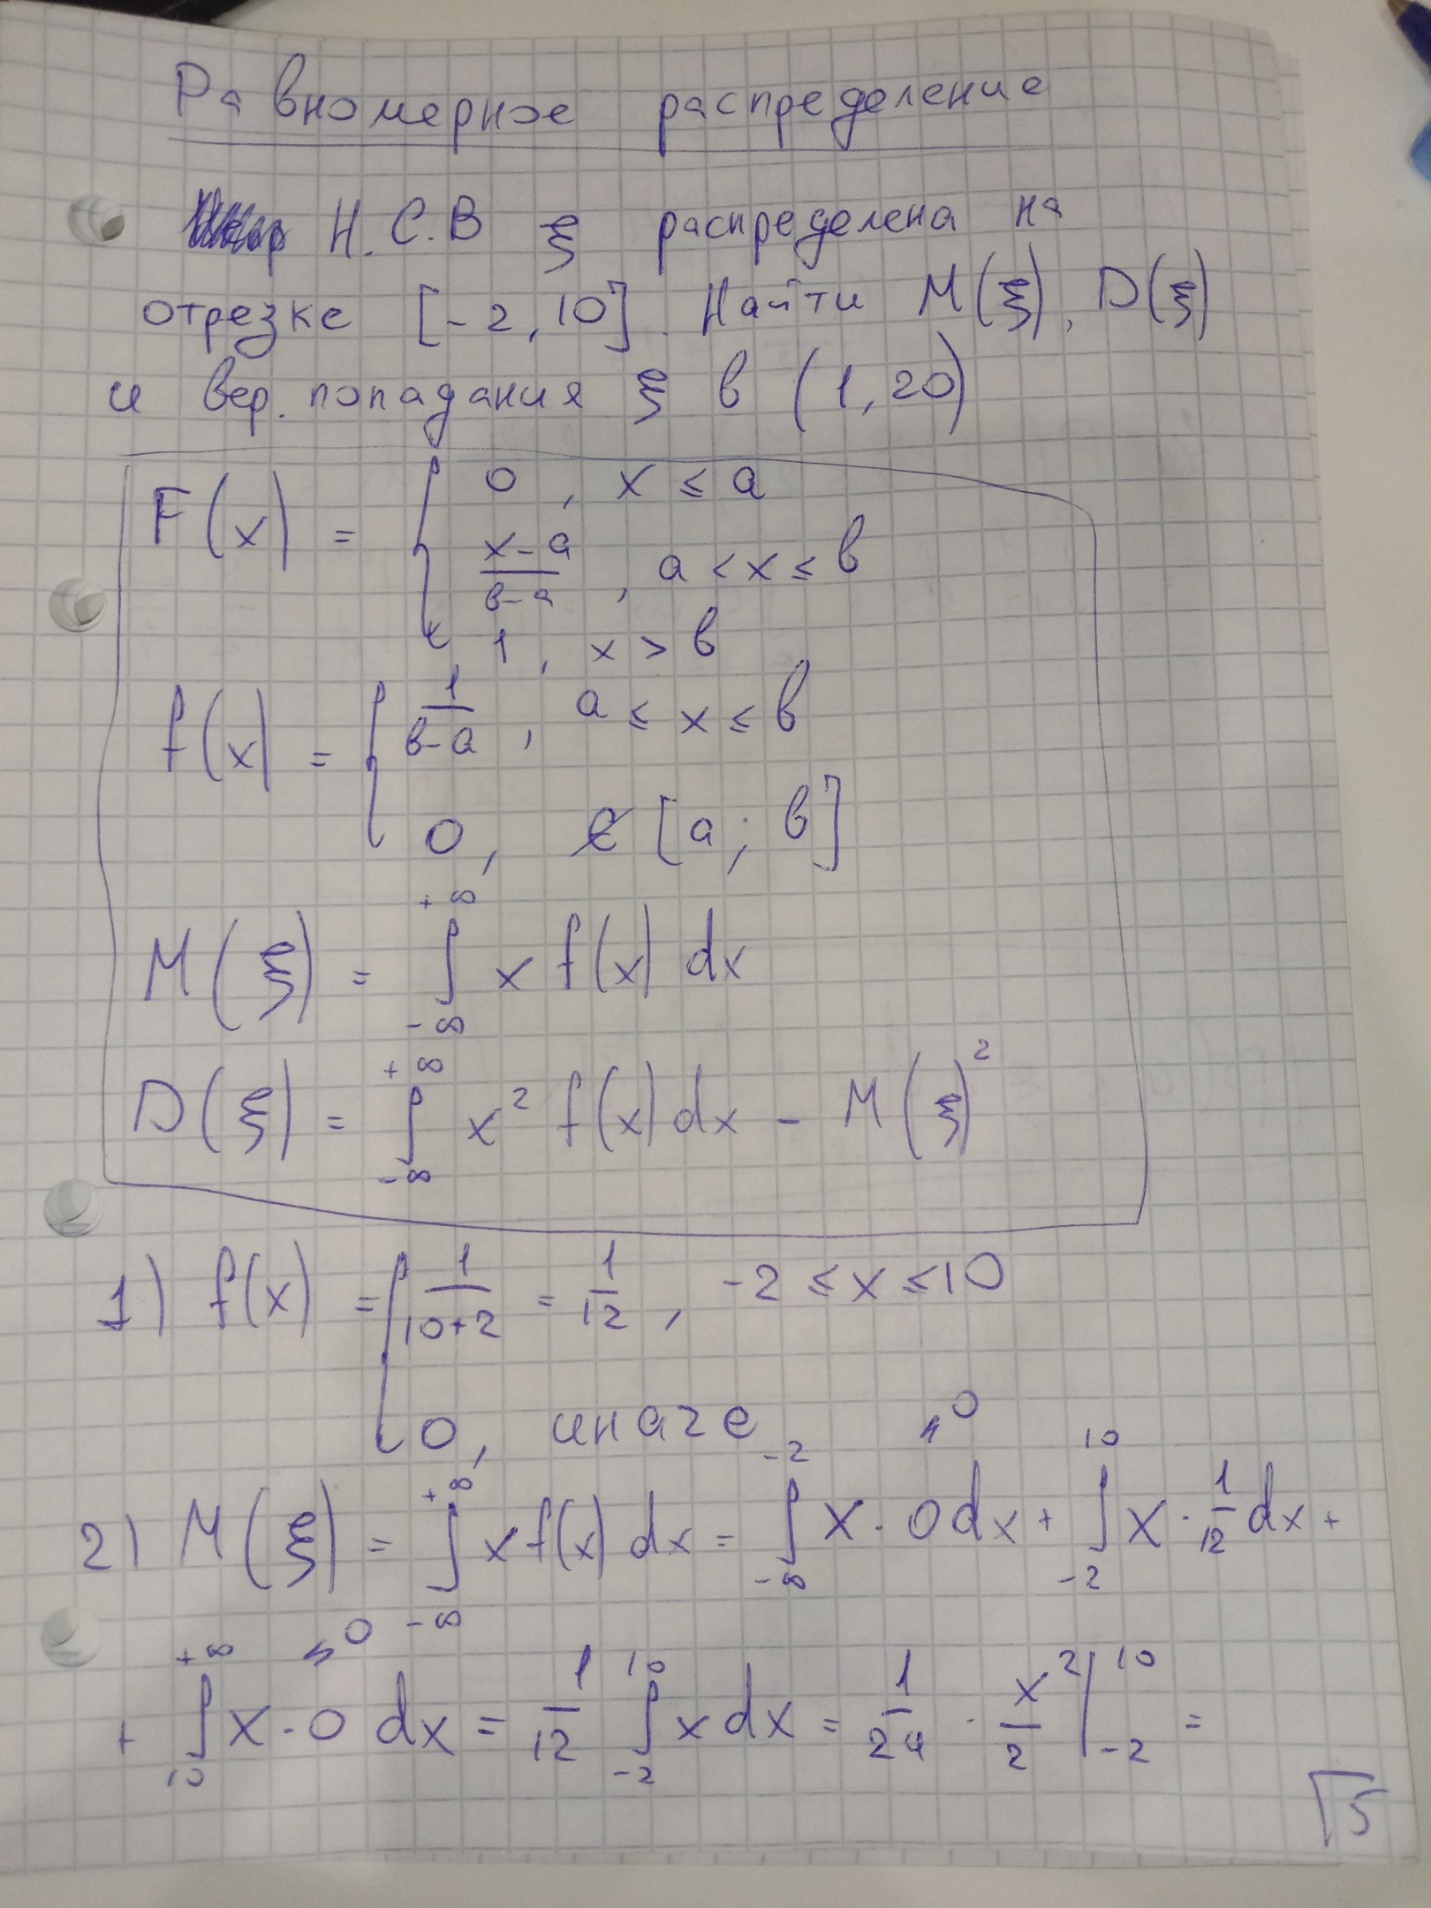 Равномерное распределение
Н.С.В ξ распределена на
отрезке [-2, 10]. Найти M(ξ), D(ξ)
и вер. попадания ξ в (1, 20)
F(x) = { 0, x ≤ a
x-a/в-a, a < x ≤ в
1, x > в
f(x) = { 1/в-a, a ≤ x ≤ в
0, ∉ [a; в]
M(ξ) = ∫_{-∞}^{+∞} x f(x) dx
D(ξ) = ∫_{-∞}^{+∞} x² f(x) dx - M(ξ)²
1) f(x) = { 1/10+2 = 1/12, -2 ≤ x ≤ 10
0, иначе
2) M(ξ) = ∫_{-∞}^{+∞} x f(x) dx = ∫_{-∞}^{-2} x · 0 dx + ∫_{-2}^{10} x · 1/12 dx +
+ ∫_{10}^{+∞} x · 0 dx = 1/12 ∫_{-2}^{10} x dx = 1/24 · x²/2 |_{-2}^{10} =
√5